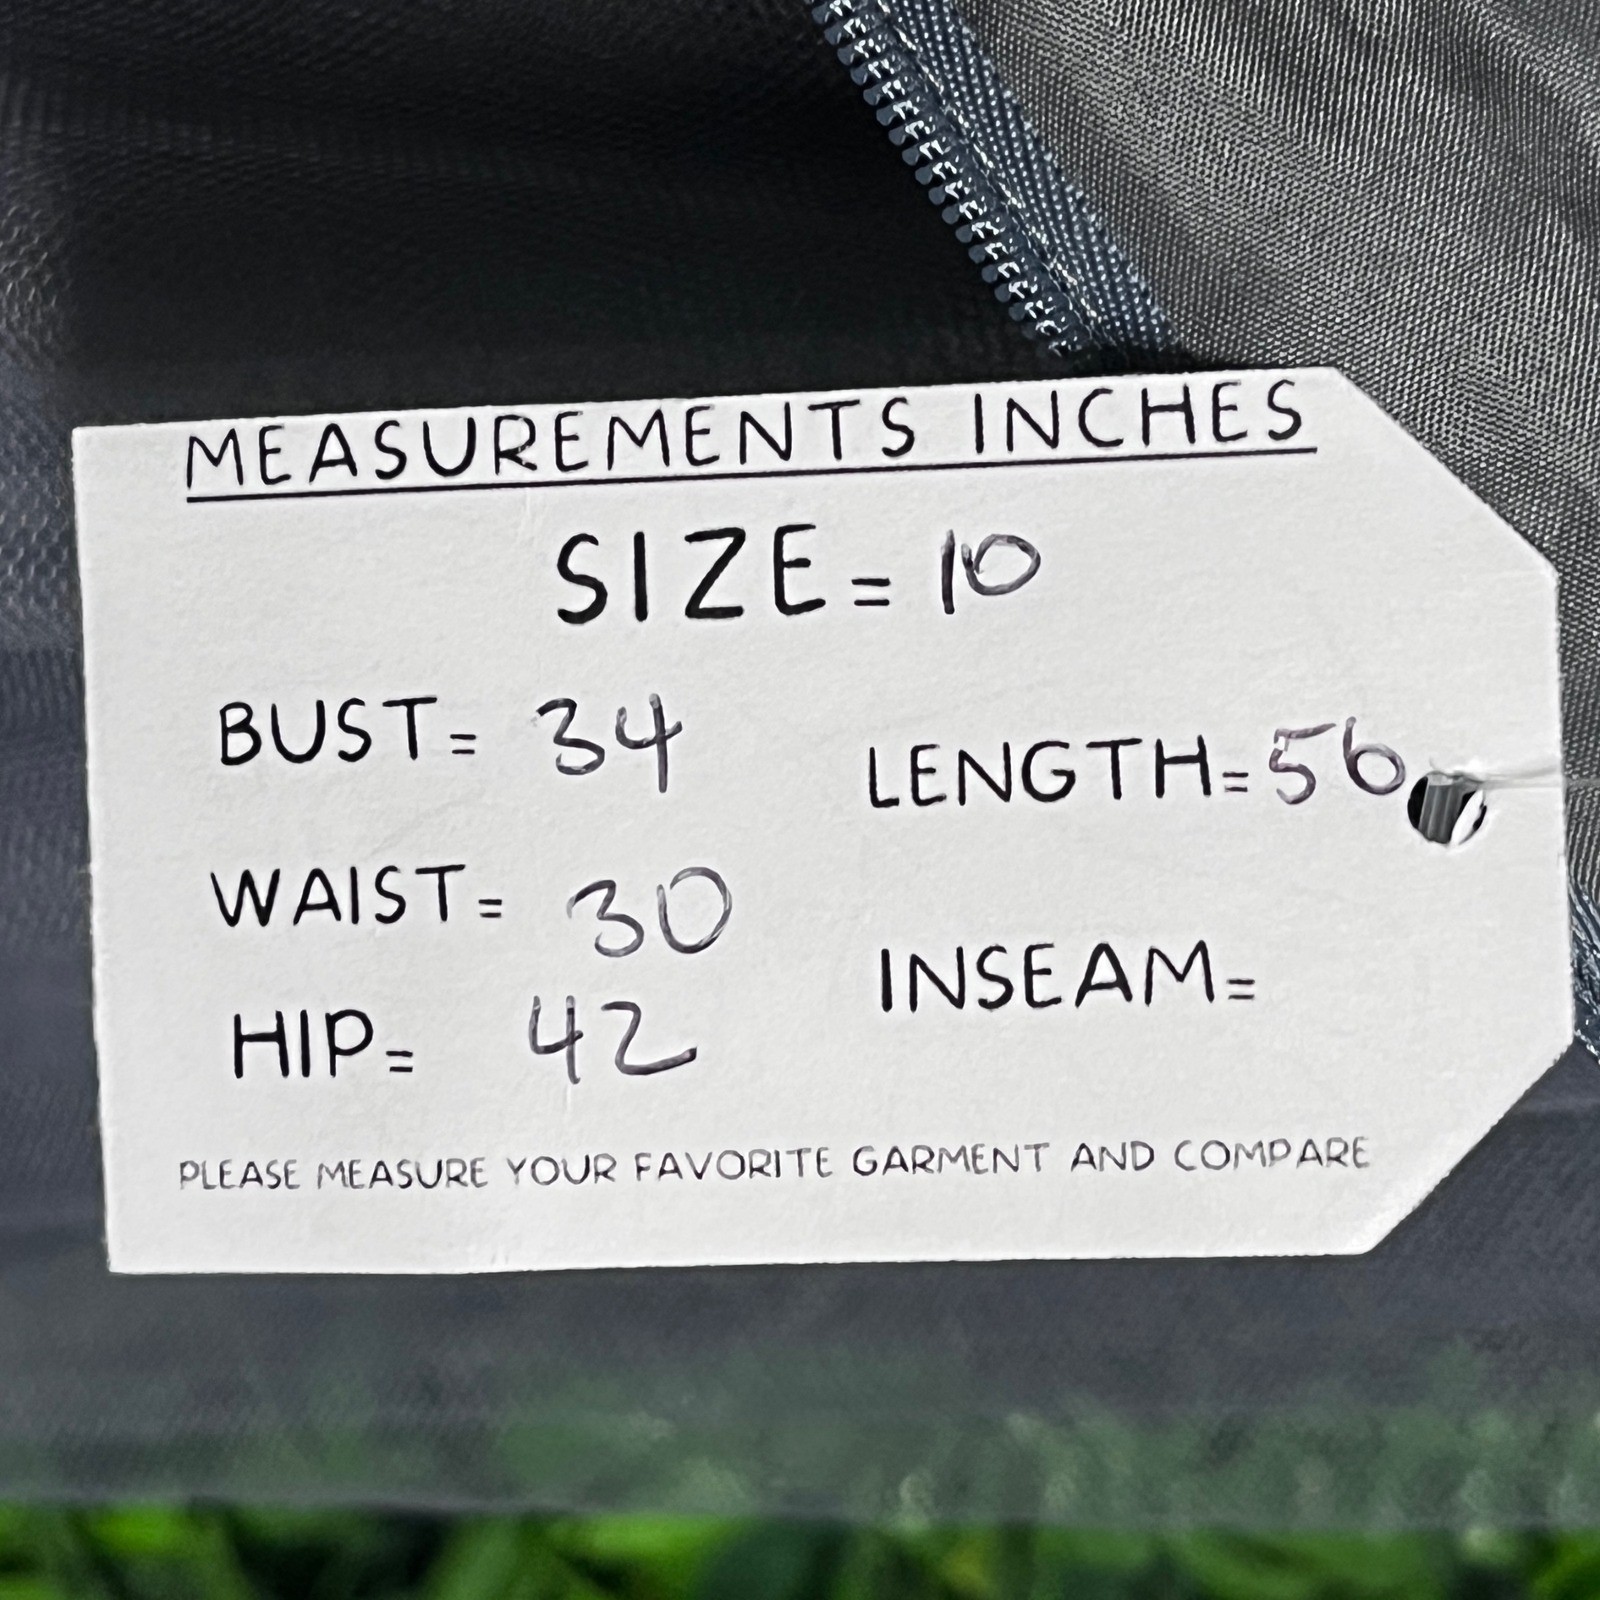 MEASUREMENTS INCHES
SIZE= 10
BUST= 34
LENGTH= 56
WAIST= 30
INSEAM=
HIP= 42
PLEASE MEASURE YOUR FAVORITE GARMENT AND COMPARE